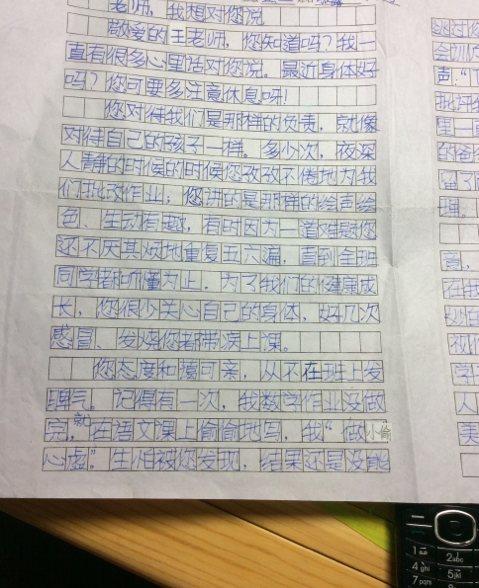 老师，我想对您说
敬爱的王老师，您知道吗？我一
直有很多心里话对您说。最近身体好
吗？您可要多注意休息呀！
您对待我们是那样的负责，就像
对待自己的孩子一样。多少次，夜深
人静的时候的时候您孜孜不倦地为我
们批改作业；您讲的是那样的绘声绘
色、生动有趣，有时因为一道难题您
还不厌其烦地重复五六遍，直到全班
同学都听懂为止，为了我们的健康成
长，您很少关心自己的身体，好几次
感冒、发烧您都带病上课。
您态度和蔼可亲，从不在班上发
脾气。记得有一次，我数学作业没做
完，就在语文课上偷偷地写，我“做小偷
心虚”生怕被您发现，结果还是没能
声。“
的爸
在我
学
人
美
1
2abc
4ghi
5jkl
7pqrs